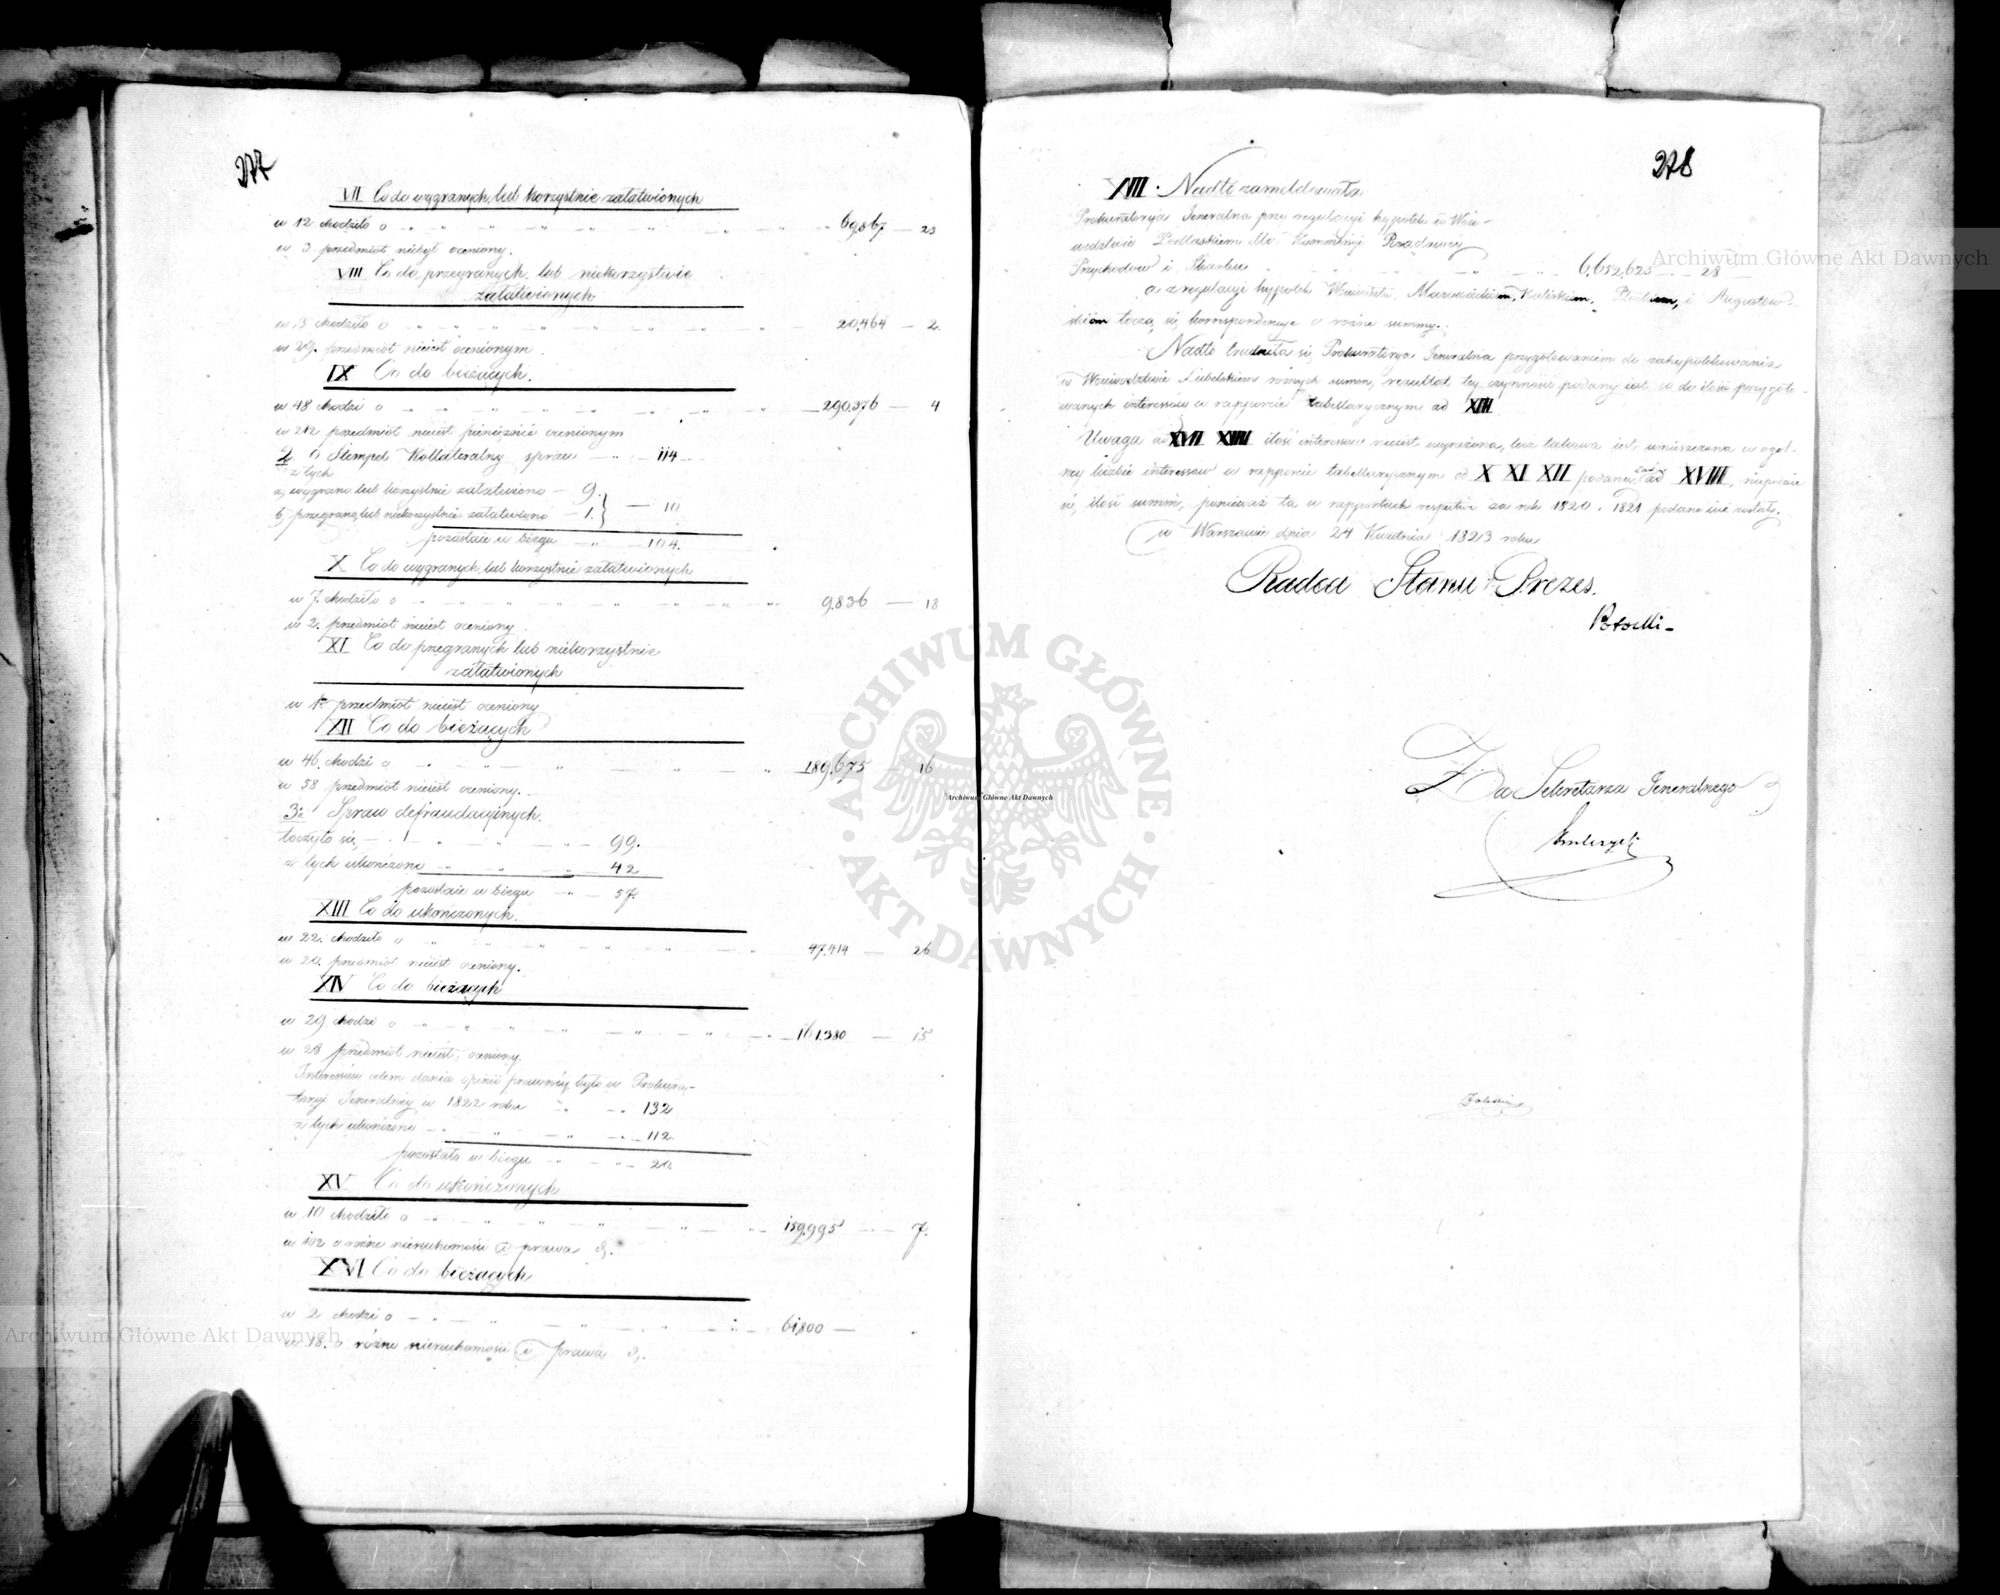 277
VII Co do wygranych, lub korzystnie załatwionych
w 12 chodziło o 69,867 — 23
w 3 przedmiot niebył oceniony.
VIII Co do przegranych, lub niekorzystnie
załatwionych
w 3 chodziło o 20,464 — 2.
w 29. przedmiot nieiest ocenionym.
IX Co do bieżących.
w 48 chodzi o 290,376 — 4
w 212 przedmiot nieiest pieniężnie ocenionym
2 o Stempel Kollateralny spraw — 114
z tych
a, wygrano lub korzystnie załatwiono — 9.
b, przegrano, lub niekorzystnie załatwiono — 1. — 10
pozostaie w biegu — 104.
X Co do wygranych, lub korzystnie załatwionych
w 7. chodziło o 9,836 — 18
w 2. przedmiot nieiest oceniony.
XI Co do przegranych lub niekorzystnie
załatwionych
w 1 przedmiot nieiest oceniony
XII Co do bieżących
w 46. chodzi o 189,675 — 16
w 58 przedmiot nieiest oceniony.
3: Spraw defraudacyjnych.
toczyło się — 99.
z tych ukończono — 42
pozostaie w biegu — 57.
XIII Co do ukończonych.
w 22. chodziło o 47,414 — 26
w 20. przedmiot nieiest oceniony.
XIV Co do bieżących
w 29 chodzi o 161,380 — 15
w 28 przedmiot nieiest oceniony.
Interessów celem dania opinii prawnéy, było w Prokura-
toryi Jeneralnéy w 1822 roku — 132
z tych ukończono — 112.
pozostało w biegu — 20.
XV. Co do ukończonych
w 10 chodziło o 159,995 — 7.
w 102 o różne nieruchomości i prawa
XVI Co do bieżących
w 2 chodzi o 61,800 —
w 18. o różne nieruchomości i prawa
278
XVII. Nadto zameldowała
Prokuratorya Jeneralna przy regulacyi hypotek w Woie-
wództwie Podlaskiem dla Kommissyi Rządowéy
Przychodów i Skarbu 6,652,625 — 28
a z regulacyi hypotek Woiewództw Mazowieckiem, Kaliskiem, Płockiem, i Augustow-
skiém toczą się korrespondencye o różne summy.
Nadto trudniła się Prokuratorya Jeneralna przygotowaniem do zahypotekowania
w Woiewództwie Lubelskiem różnych summ, rezultat téy czynności podany iest co do ilości przygoto-
wanych interessów w rapporcie tabellarycznym ad XIII
Uwaga ad XVII XVIII ilość interessów nieiest wyrażona, lecz takowa iest umieszczona w ogól-
néy liczbie interessów w rapporcie tabellarycznym ad X XI XII podanéy, ad XVIII, niepodaie
się ilość summ, ponieważ ta w rapportach respective za rok 1820 i 1821 podana iuż została.
w Warszawie dnia 24 Kwietnia 1823 roku
Radca Stanu Prezes.
Potocki
Za Sekretarza Jeneralnego
Archiwum Główne Akt Dawnych
Archiwum Główne Akt Dawnych
Archiwum Główne Akt Dawnych
ARCHIWUM GŁÓWNE
AKT DAWNYCH